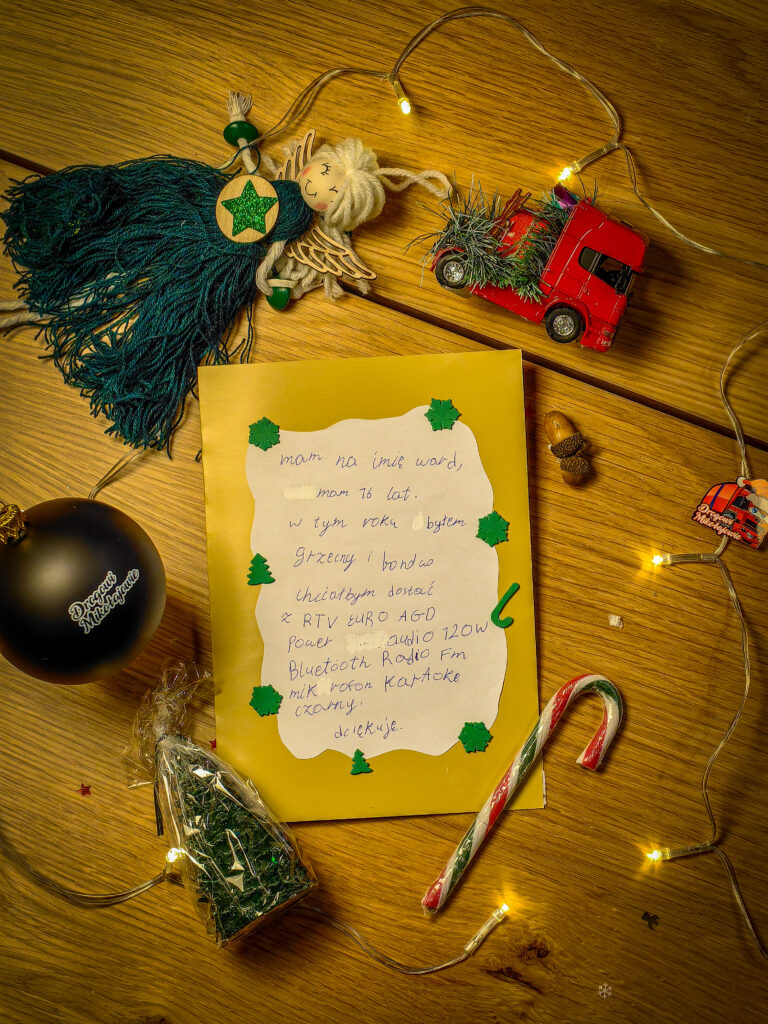 mam na imię ward,
mam 16 lat.
w tym roku byłem
grzeczny i bardzo
chciałbym dostać
z RTV EURO AGD
Power audio 120W
Bluetooth Radio Fm
mikrofon Karaoke
czarny.
dziękuję.
Drogowi
Mikołajowie
Drogowi
Mikołajowie